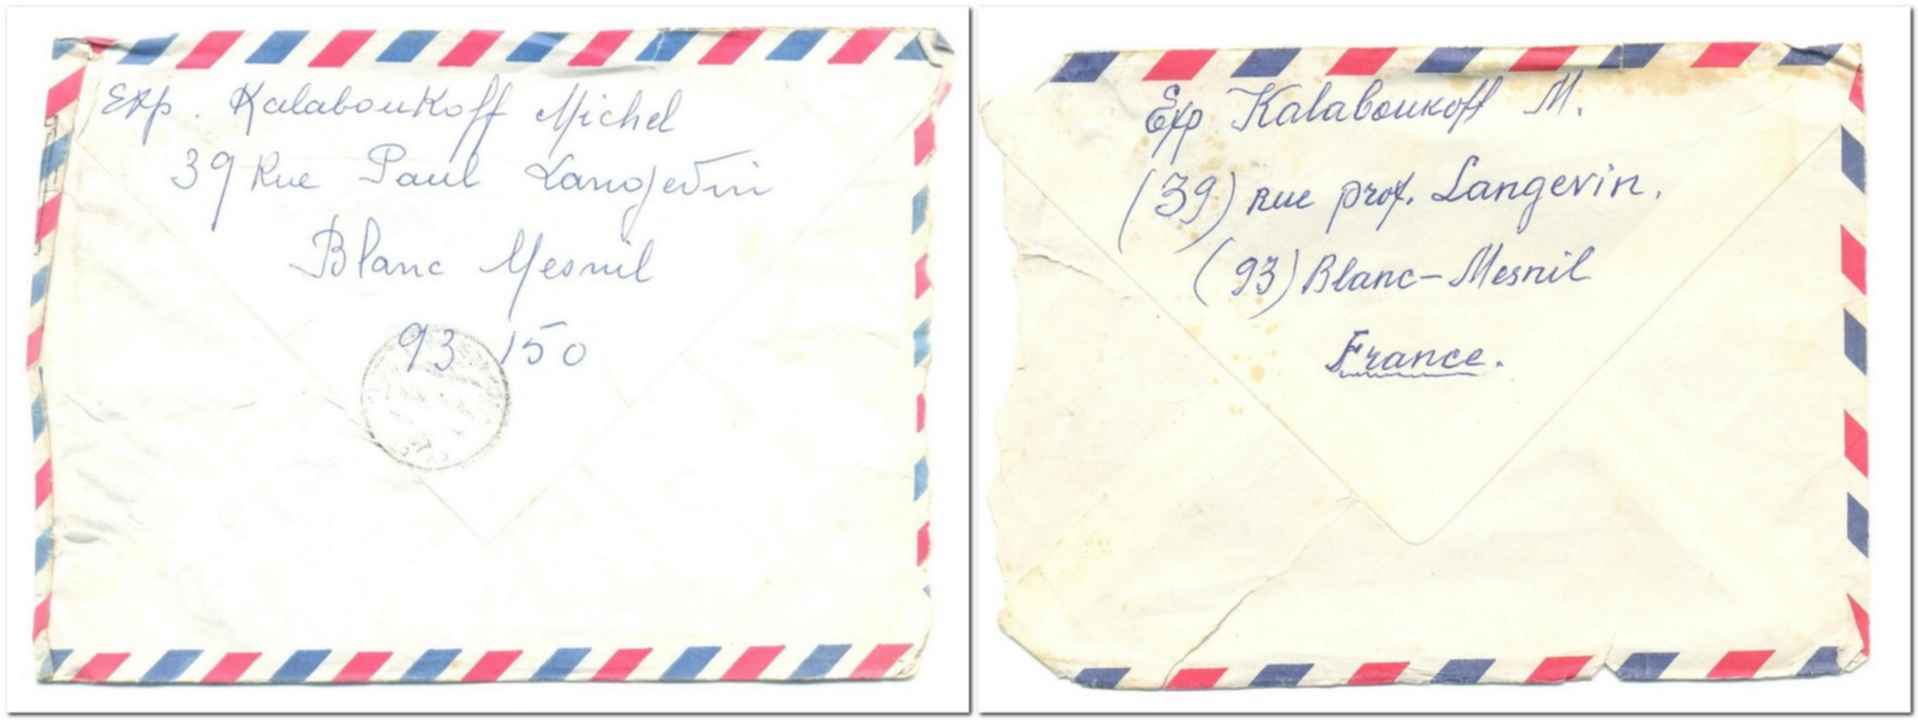 Exp. Kalaboukoff Michel
39 Rue Paul Langevin
Blanc Mesnil
93 150
Exp Kalaboukoff M.
(39) rue prof. Langevin.
(93) Blanc-Mesnil
France.